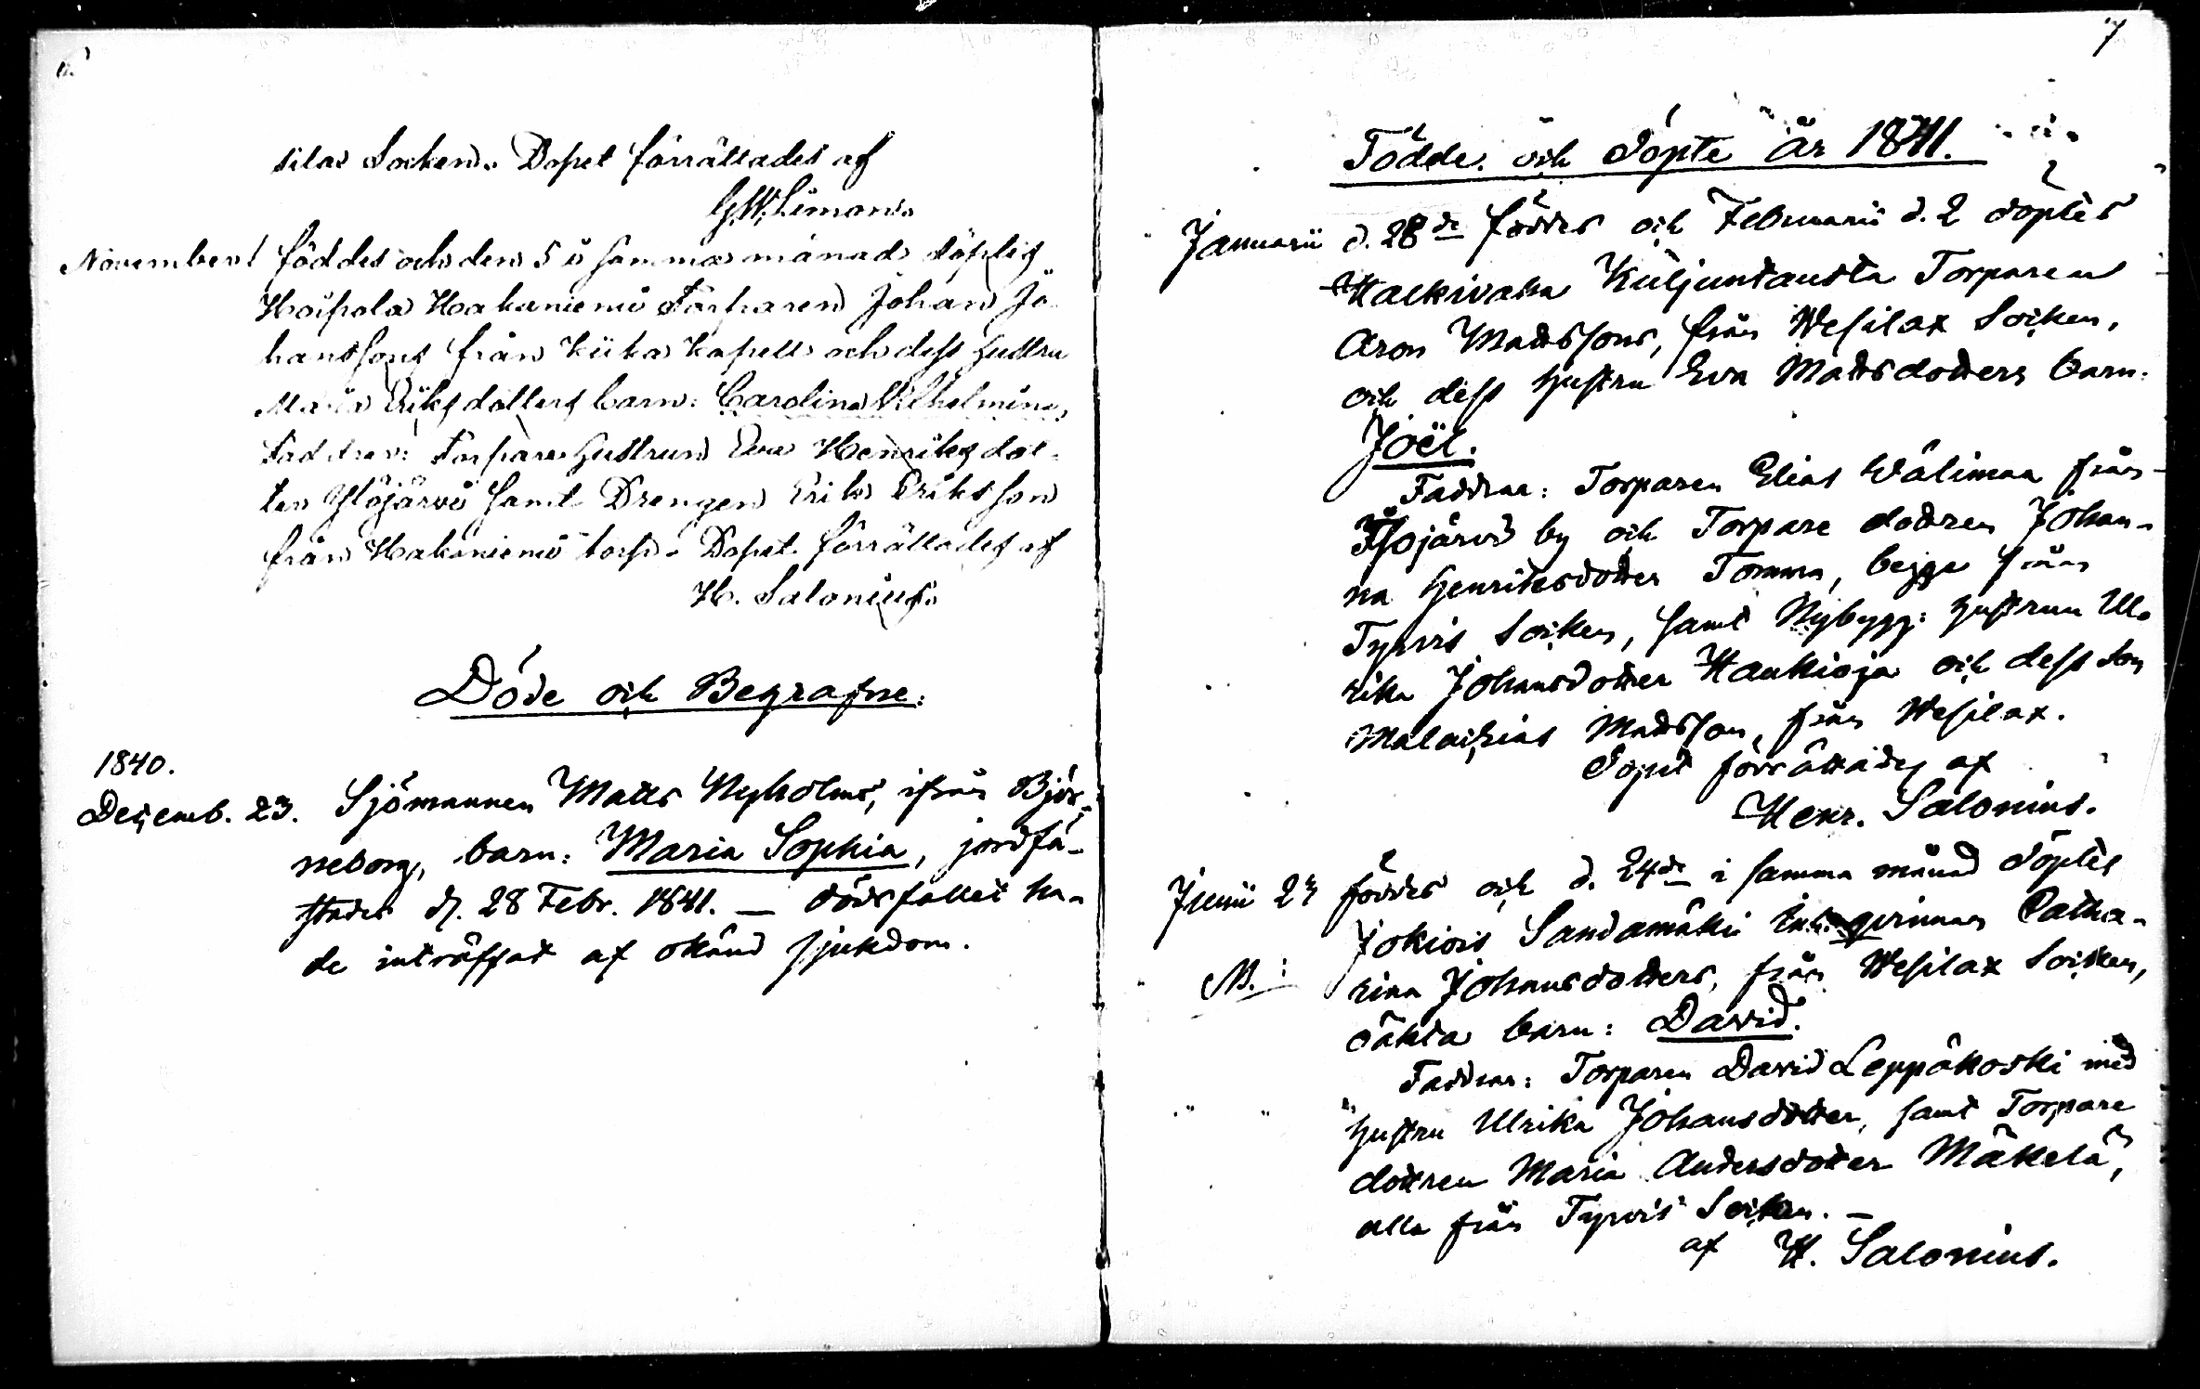 silax Socken. Dopet förrättades af
G. W. Limon.
November 1 föddes och den 5 i samma månad döptes
Hoipola Hakaniemi Torparen Johan Jo-
hanssons från Kiika Kapell och dess hustru
Maria Eriksdotters barn: Carolina Vilhelmina,
Faddrar: Torpare hustrun Eva Henriksdot-
ter Ylöjärvi samt Drengen Erik Eriksson
från Hakaniemi torp. Dopet förrättades af
H. Salonius.
Döde och Begrafne:
1840.
Decemb. 23. Sjömannen Matts Nyholms, ifrån Björ-
neborg, barn: Maria Sophia, jordfä-
stades d. 28 Febr. 1841. — dödsfallet ha-
de inträffat af okänd sjukdom.
7
Födde och Döpte År 1841.
Januarii d. 28de föddes och Februarii d. 2 döptes
Halkivaha Kuljuntausta Torparen
Aron Mattssons, från Wesilax Socken,
och dess hustru Eva Mattsdotters barn:
Joël.
Faddrar: Torparen Elias Wälimaa från
Illojärvi by och Torpare dottren Johan-
na Henriksdotter Tomma, begge från
Tyrvis Socken, samt Nybygg: hustrun Ul-
rika Johansdotter Haukioja och dess son
Malachias Mattsson, från Wesilax.
Dopet förrättades af
Henr. Salonius.
Junii 23 föddes och d. 24de i samma månad döptes
Jokiois Sandamäki Inh.qvinnan Catha-
NB.: rina Johansdotters, från Wesilax Socken,
oäkta barn: David.
Faddrar: Torparen David Leppäkoski med
hustru Ulrika Johansdotter, samt Torpare
dottren Maria Andersdotter Mäkelä,
alla från Tyrvis Socken. —
af H. Salonius.